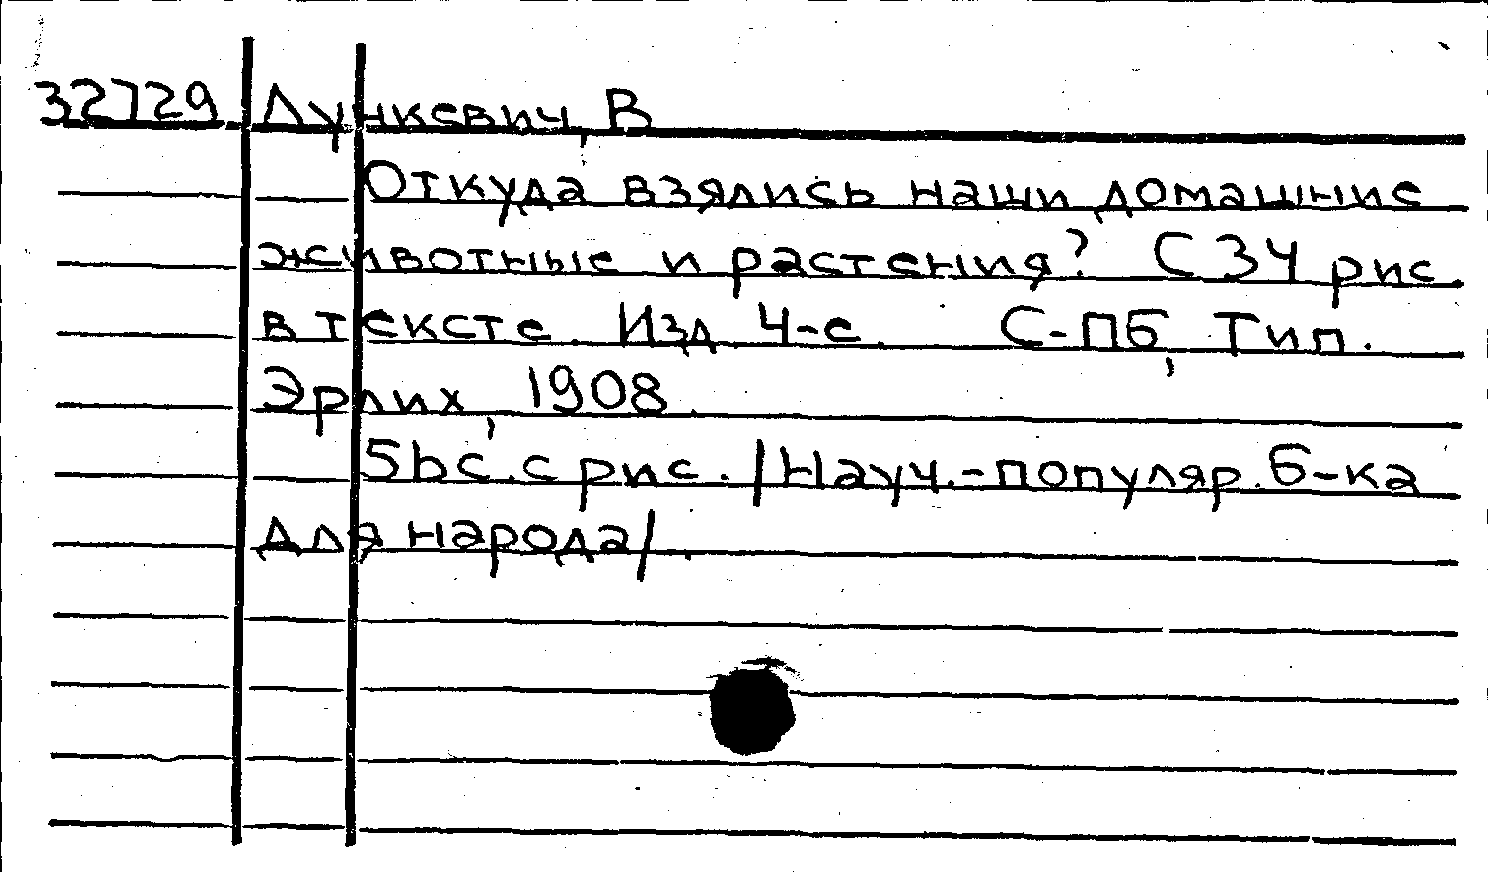 32729. Лункевич, В
Откуда взялись наши домашние
животные и растения? С 34 рис.
в тексте. Изд. 4-е. С-ПБ, Тип.
Эрлих, 1908.
56 с. с рис. /Науч.-популяр. б-ка
для народа/.